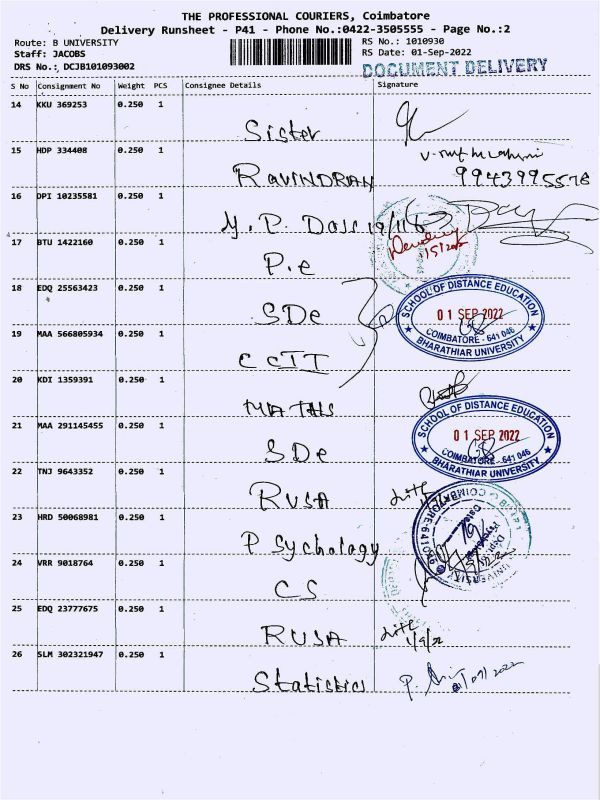 THE PROFESSIONAL COURIERS, Coimbatore
Delivery Runsheet - P41 - Phone No.:0422-3505555 - Page No.:2
Route: B UNIVERSITY
Staff: JACOBS
DRS No.: DCJB101093002
RS No.: 1010930
RS Date: 01-Sep-2022
DOCUMENT DELIVERY
S No Consignment No Weight PCS Consignee Details Signature
14 KKU 369253 0.250 1
Sister
15 HDP 334408 0.250 1
RAVINDRAN 9943995578
16 DPI 10235581 0.250 1
Y. P. Dass
17 BTU 1422160 0.250 1
P.e
18 EDQ 25563423 0.250 1
SDe
SCHOOL OF DISTANCE EDUCATION
01 SEP 2022
COIMBATORE - 641 046
BHARATHIAR UNIVERSITY
19 MAA 566805934 0.250 1
CCIT
20 KDI 1359391 0.250 1
MATHS
21 MAA 291145455 0.250 1
SDe
SCHOOL OF DISTANCE EDUCATION
01 SEP 2022
COIMBATORE - 641 046
BHARATHIAR UNIVERSITY
22 TNJ 9643352 0.250 1
RUSA
23 HRD 50068981 0.250 1
Psychology
24 VRR 9018764 0.250 1
CS
25 EDQ 23777675 0.250 1
RUSA
1/9/22
26 SLM 302321947 0.250 1
Statistics